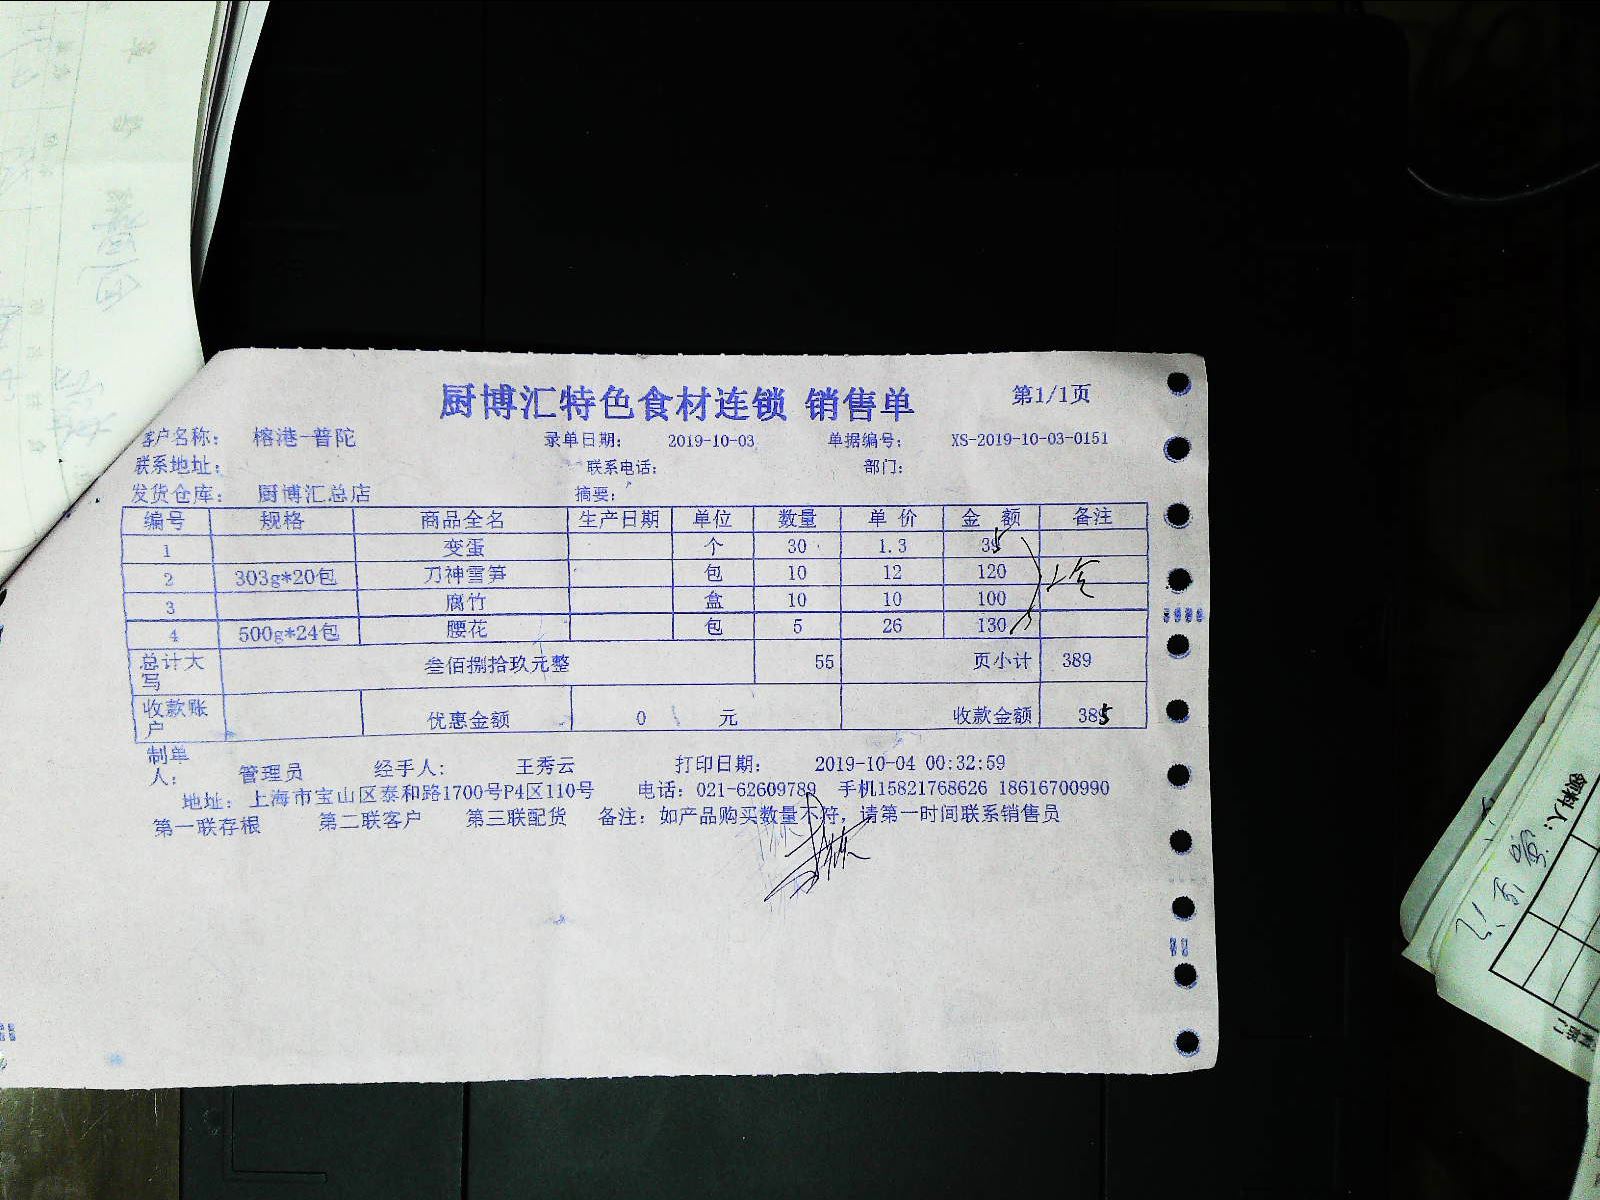 厨博汇特色食材连锁 销售单 第1/1页
客户名称: 榕港-普陀 录单日期: 2019-10-03 单据编号: XS-2019-10-03-0151
联系地址: 联系电话: 部门:
发货仓库: 厨博汇总店 摘要:
编号 规格 商品全名 生产日期 单位 数量 单价 金额 备注
1 变蛋 个 30 1.3 35
2 303g*20包 刀神雪笋 包 10 12 120
3 腐竹 盒 10 10 100
4 500g*24包 腰花 包 5 26 130
总计大写 叁佰捌拾玖元整 55 页小计 389
收款账户 优惠金额 0 元 收款金额 385
制单人: 管理员 经手人: 王秀云 打印日期: 2019-10-04 00:32:59
地址: 上海市宝山区泰和路1700号P4区110号 电话: 021-62609789 手机15821768626 18616700990
第一联存根 第二联客户 第三联配货 备注: 如产品购买数量不符, 请第一时间联系销售员
领料人: